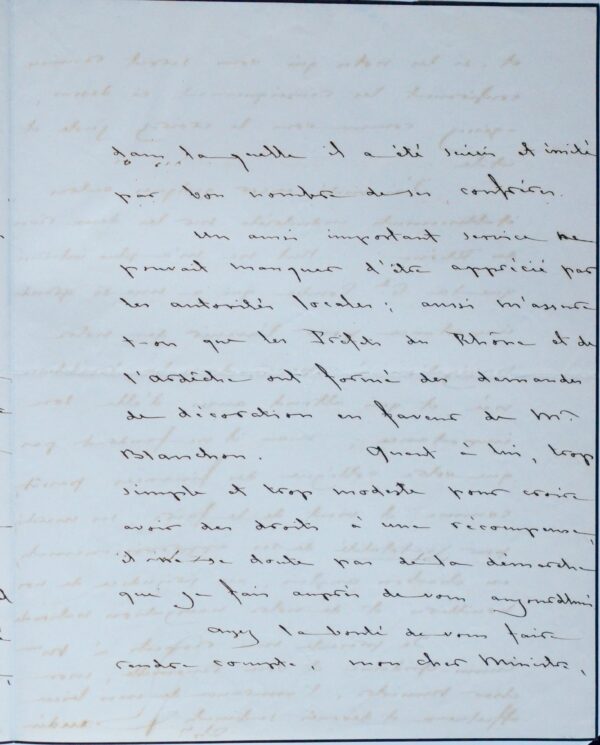 dans laquelle il a été suivi et imité
par bon nombre de ses confrères.
Un aussi important service ne
pouvait manquer d'être apprécié par
les autorités locales ; aussi m'assure
t-on que les Préfets du Rhône et de
l'Ardèche ont formé des demandes
de décoration en faveur de Mr
Blanchon. Quant à lui, trop
simple et trop modeste pour croire
avoir des droits à une récompense,
il ne se doute pas de la démarche
que je fais auprès de vous aujourd'hui
Ayez la bonté de vous faire
rendre compte, mon cher Ministre,